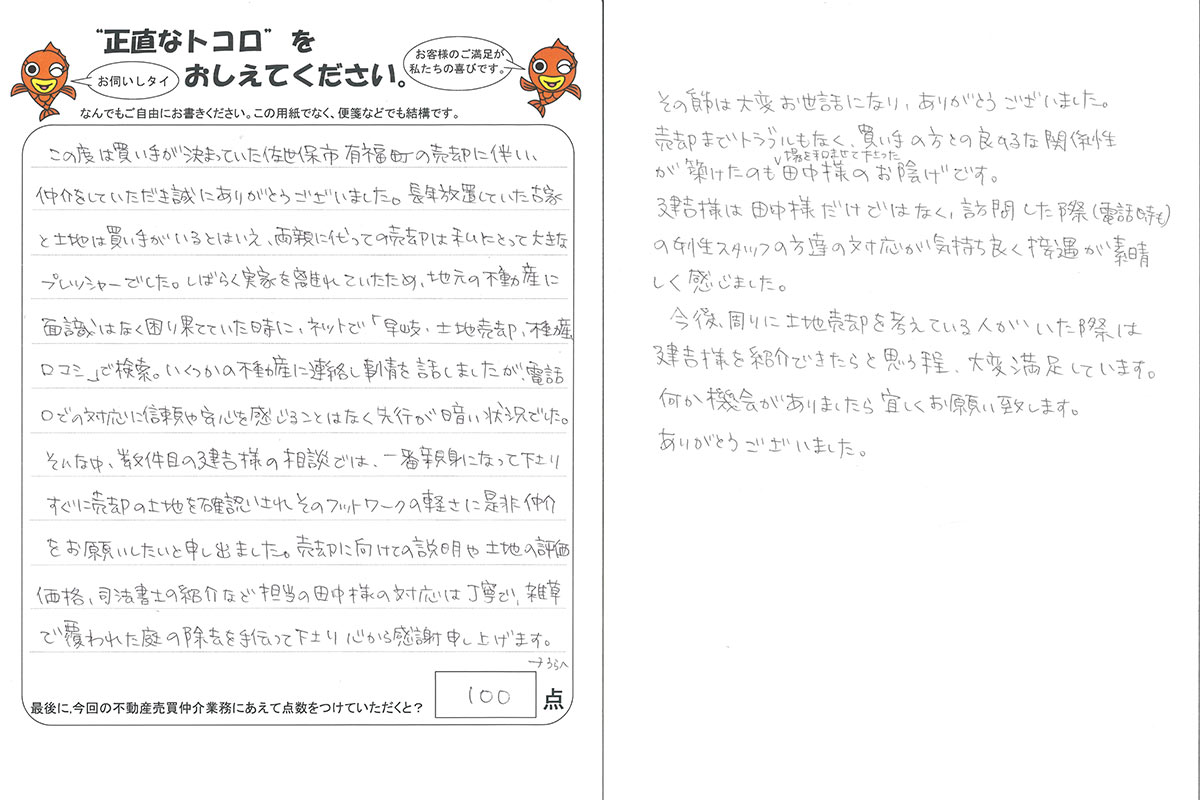 "正直なトコロ"を
おしえてください。
お伺いしタイ
お客様のご満足が
私たちの喜びです。
なんでもご自由にお書きください。この用紙でなく、便箋などでも結構です。
この度は買い手が決まっていた佐世保市有福町の売却に伴い、
仲介をしていただき誠にありがとうございました。長年放置していた古家
と土地は買い手がいるとはいえ、両親に代っての売却は私にとって大きな
プレッシャーでした。しばらく実家を離れていたため、地元の不動産に
面識はなく困り果てていた時に、ネットで「早岐、土地売却、不動産
口コミ」で検索。いくつかの不動産に連絡し事情を話しましたが、電話
口での対応に信頼や安心を感じることはなく先行が暗い状況でした。
そんな中、数件目の建吉様の相談では、一番親身になって下さり
すぐに売却の土地を確認いされそのフットワークの軽さに是非仲介
をお願いしたいと申し出ました。売却に向けての説明や土地の評価
価格、司法書士の紹介など担当の田中様の対応は丁寧で、雑草
で覆われた庭の除去を手伝って下さり心から感謝申し上げます。
→うらへ
最後に、今回の不動産売買仲介業務にあえて点数をつけていただくと?
100
点
その節は大変お世話になり、ありがとうございました。
売却までトラブルもなく、買い手の方との良好な関係性
場を和ませて下さった
が築けたのも田中様のお陰げです。
建吉様は田中様だけではなく、訪問した際(電話時も)
の女性スタッフの方達の対応が気持ち良く接遇が素晴
しく感じました。
今後、周りに土地売却を考えている人がいた際は
建吉様を紹介できたらと思う程、大変満足しています。
何か機会がありましたら宜しくお願い致します。
ありがとうございました。